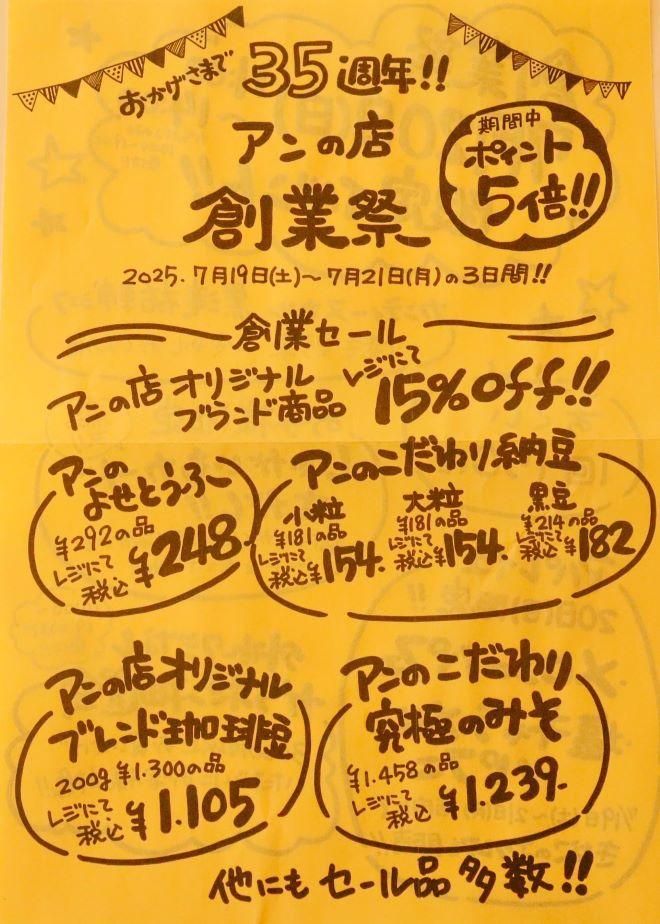 おかげさまで 35週年!!
アンの店
創業祭
期間中
ポイント
5倍!!
2025.7月19日(土)~7月21日(月)の3日間!!
創業セール
アンの店オリジナル
ブランド商品
レジにて
15%Off!!
アンの
よせとうふ
¥292の品
レジにて
税込
¥248-
アンのこだわり納豆
小粒
¥181の品
レジにて
税込¥154.
大粒
¥181の品
レジにて
税込¥154.
黒豆
¥214の品
レジにて
税込¥182
アンの店オリジナル
ブレンド珈琲豆
200g ¥1.300の品
レジにて
税込
¥1.105
アンのこだわり
究極のみそ
¥1.458の品
レジにて
税込
¥1.239-
他にもセール品多数!!